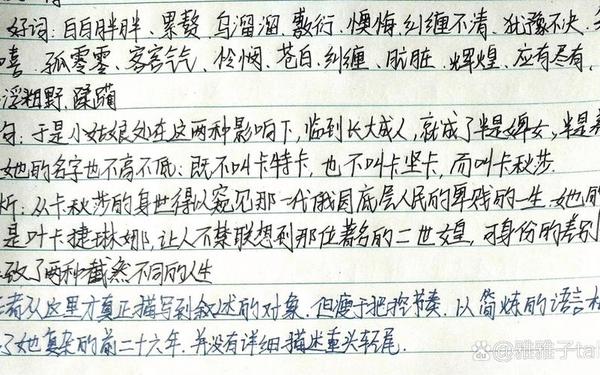 好词：白白胖胖、累赘、乌溜溜、敷衍、懊悔、纠缠不清、犹豫不决、
喜、孤零零、客客气气、怜悯、苍白、纠缠、肮脏、辉煌、应有尽有、
浮、粗野、蹂躏
句：于是小姑娘处在这两种影响下，临到长大成人，就成了半是婢女，半是养
她的名字也不高不低：既不叫卡特卡，也不叫卡坚卡，而叫卡秋莎.
析：从卡秋莎的身世得以窥见那一代俄国底层人民的卑贱的一生.她的
是叶卡捷琳娜，让人不禁联想到那位著名的二世女皇，可身份的差别
致了两种截然不同的人生
者从这里才真正描写到叙述的对象.但瘦于把控节奏.以简炼的语言
了她复杂的前二十六年.并没有详细描述重头轻尾.
@雅雅子tal